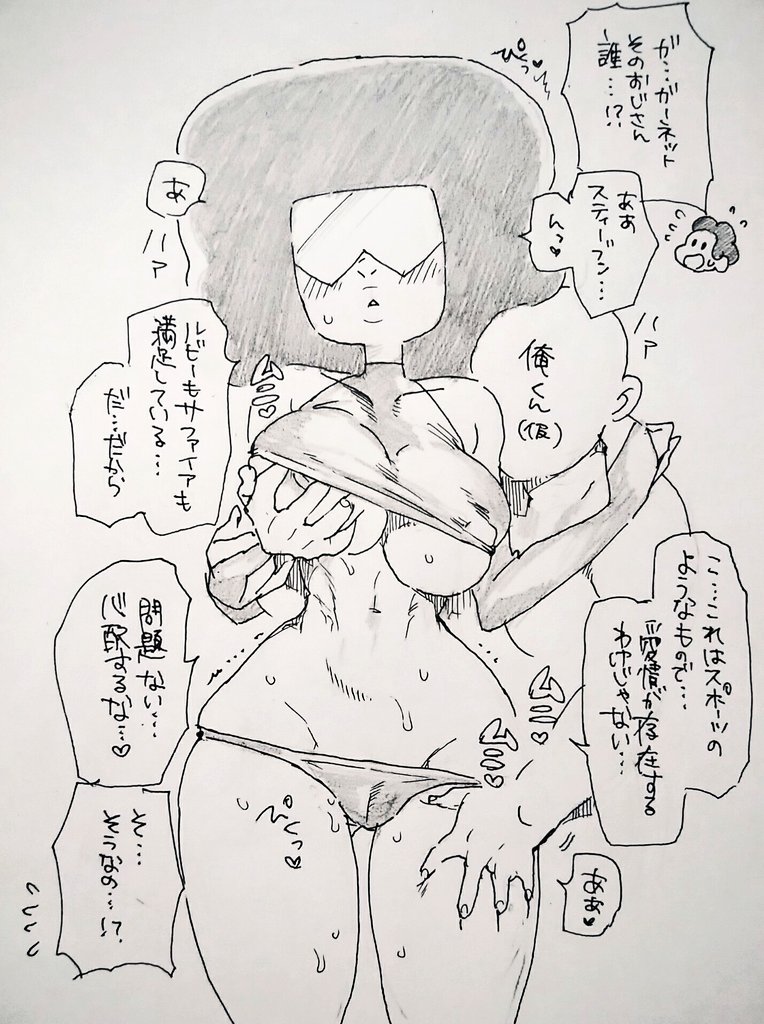 が…ガーネット
そのおじさん
誰…!?
ああ
スティーブン…
んっ♥
ぴくっ
あ
ハァ
ハァ
俺くん
(仮)
ルビーもサファイアも
満足している…
だ…だから
ムニ♡
こ…これはスポーツの
ようなもので…
愛情が存在する
わけじゃない…
問題ない…
心配するな…♡
ムニ♡
ムニ♡
ぴくっ♡
そ…
そうなの…!?
ああ♥